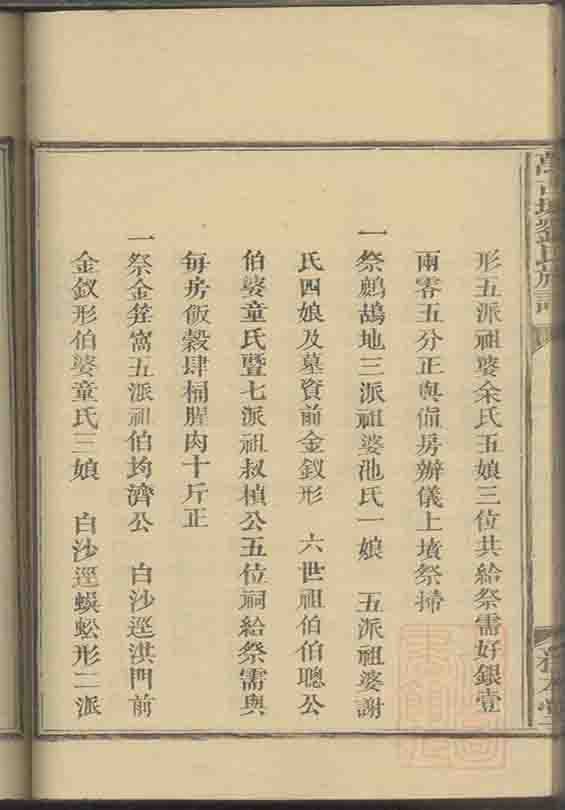 形五派祖婆余氏五娘三位共給祭需好銀壹
兩零五分正與值房辦儀上墳祭掃
一祭鷓鴣地三派祖婆池氏一娘 五派祖婆謝
氏四娘及墓資前金釵形 六世祖伯伯聰公
伯婆童氏暨七派祖叔楨公五位祠給祭需與
每房飯穀肆桶腥肉十斤正
一祭金筓窩五派祖伯均濟公 白沙逕洪門前
金釵形伯婆童氏三娘 白沙逕蜈蚣形二派
劉氏族譜